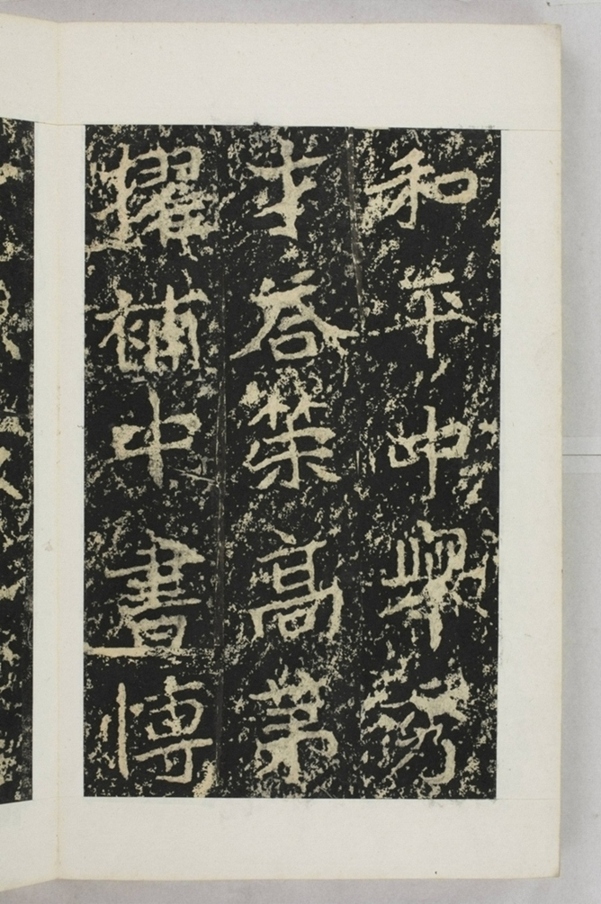 和平中舉秀
才荅策高苐
擢補中書愽